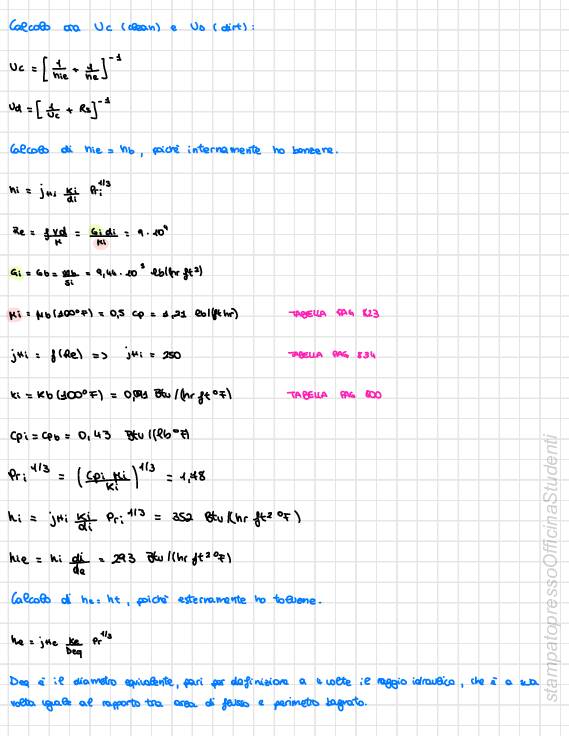 Calcolo ora Uc (clean) e Ud (dirt):
Uc = [1/hie + 1/he]^-1
Ud = [1/Uc + Rs]^-1
Calcolo di hie = hb, poiché internamente ho benzene.
hi = jHi ki/di Pri^1/3
Re = ρVd/μ = Gi di/μi = 9·10^4
Gi = Gb = mb/Si = 9,44·10^5 lb/(hr ft²)
μi = μb(100°F) = 0,5 cp = 1,21 lb/(ft hr) TABELLA PAG 823
jHi = f(Re) => jHi = 250 TABELLA PAG 834
ki = kb(100°F) = 0,091 Btu/(hr ft °F) TABELLA PAG 800
cpi = cpb = 0,43 Btu/(lb °F)
Pri^1/3 = (cpi μi/ki)^1/3 = 1,78
hi = jHi ki/di Pri^1/3 = 352 Btu/(hr ft² °F)
hie = hi di/de = 293 Btu/(hr ft² °F)
Calcolo di he = ht, poiché esternamente ho toluene.
he = jHe ke/Deq Pr^1/3
Deq è il diametro equivalente, pari per definizione a 4 volte il raggio idraulico, che è a sua
volta uguale al rapporto tra area di flusso e perimetro bagnato.
stampatopressoOfficinaStudenti